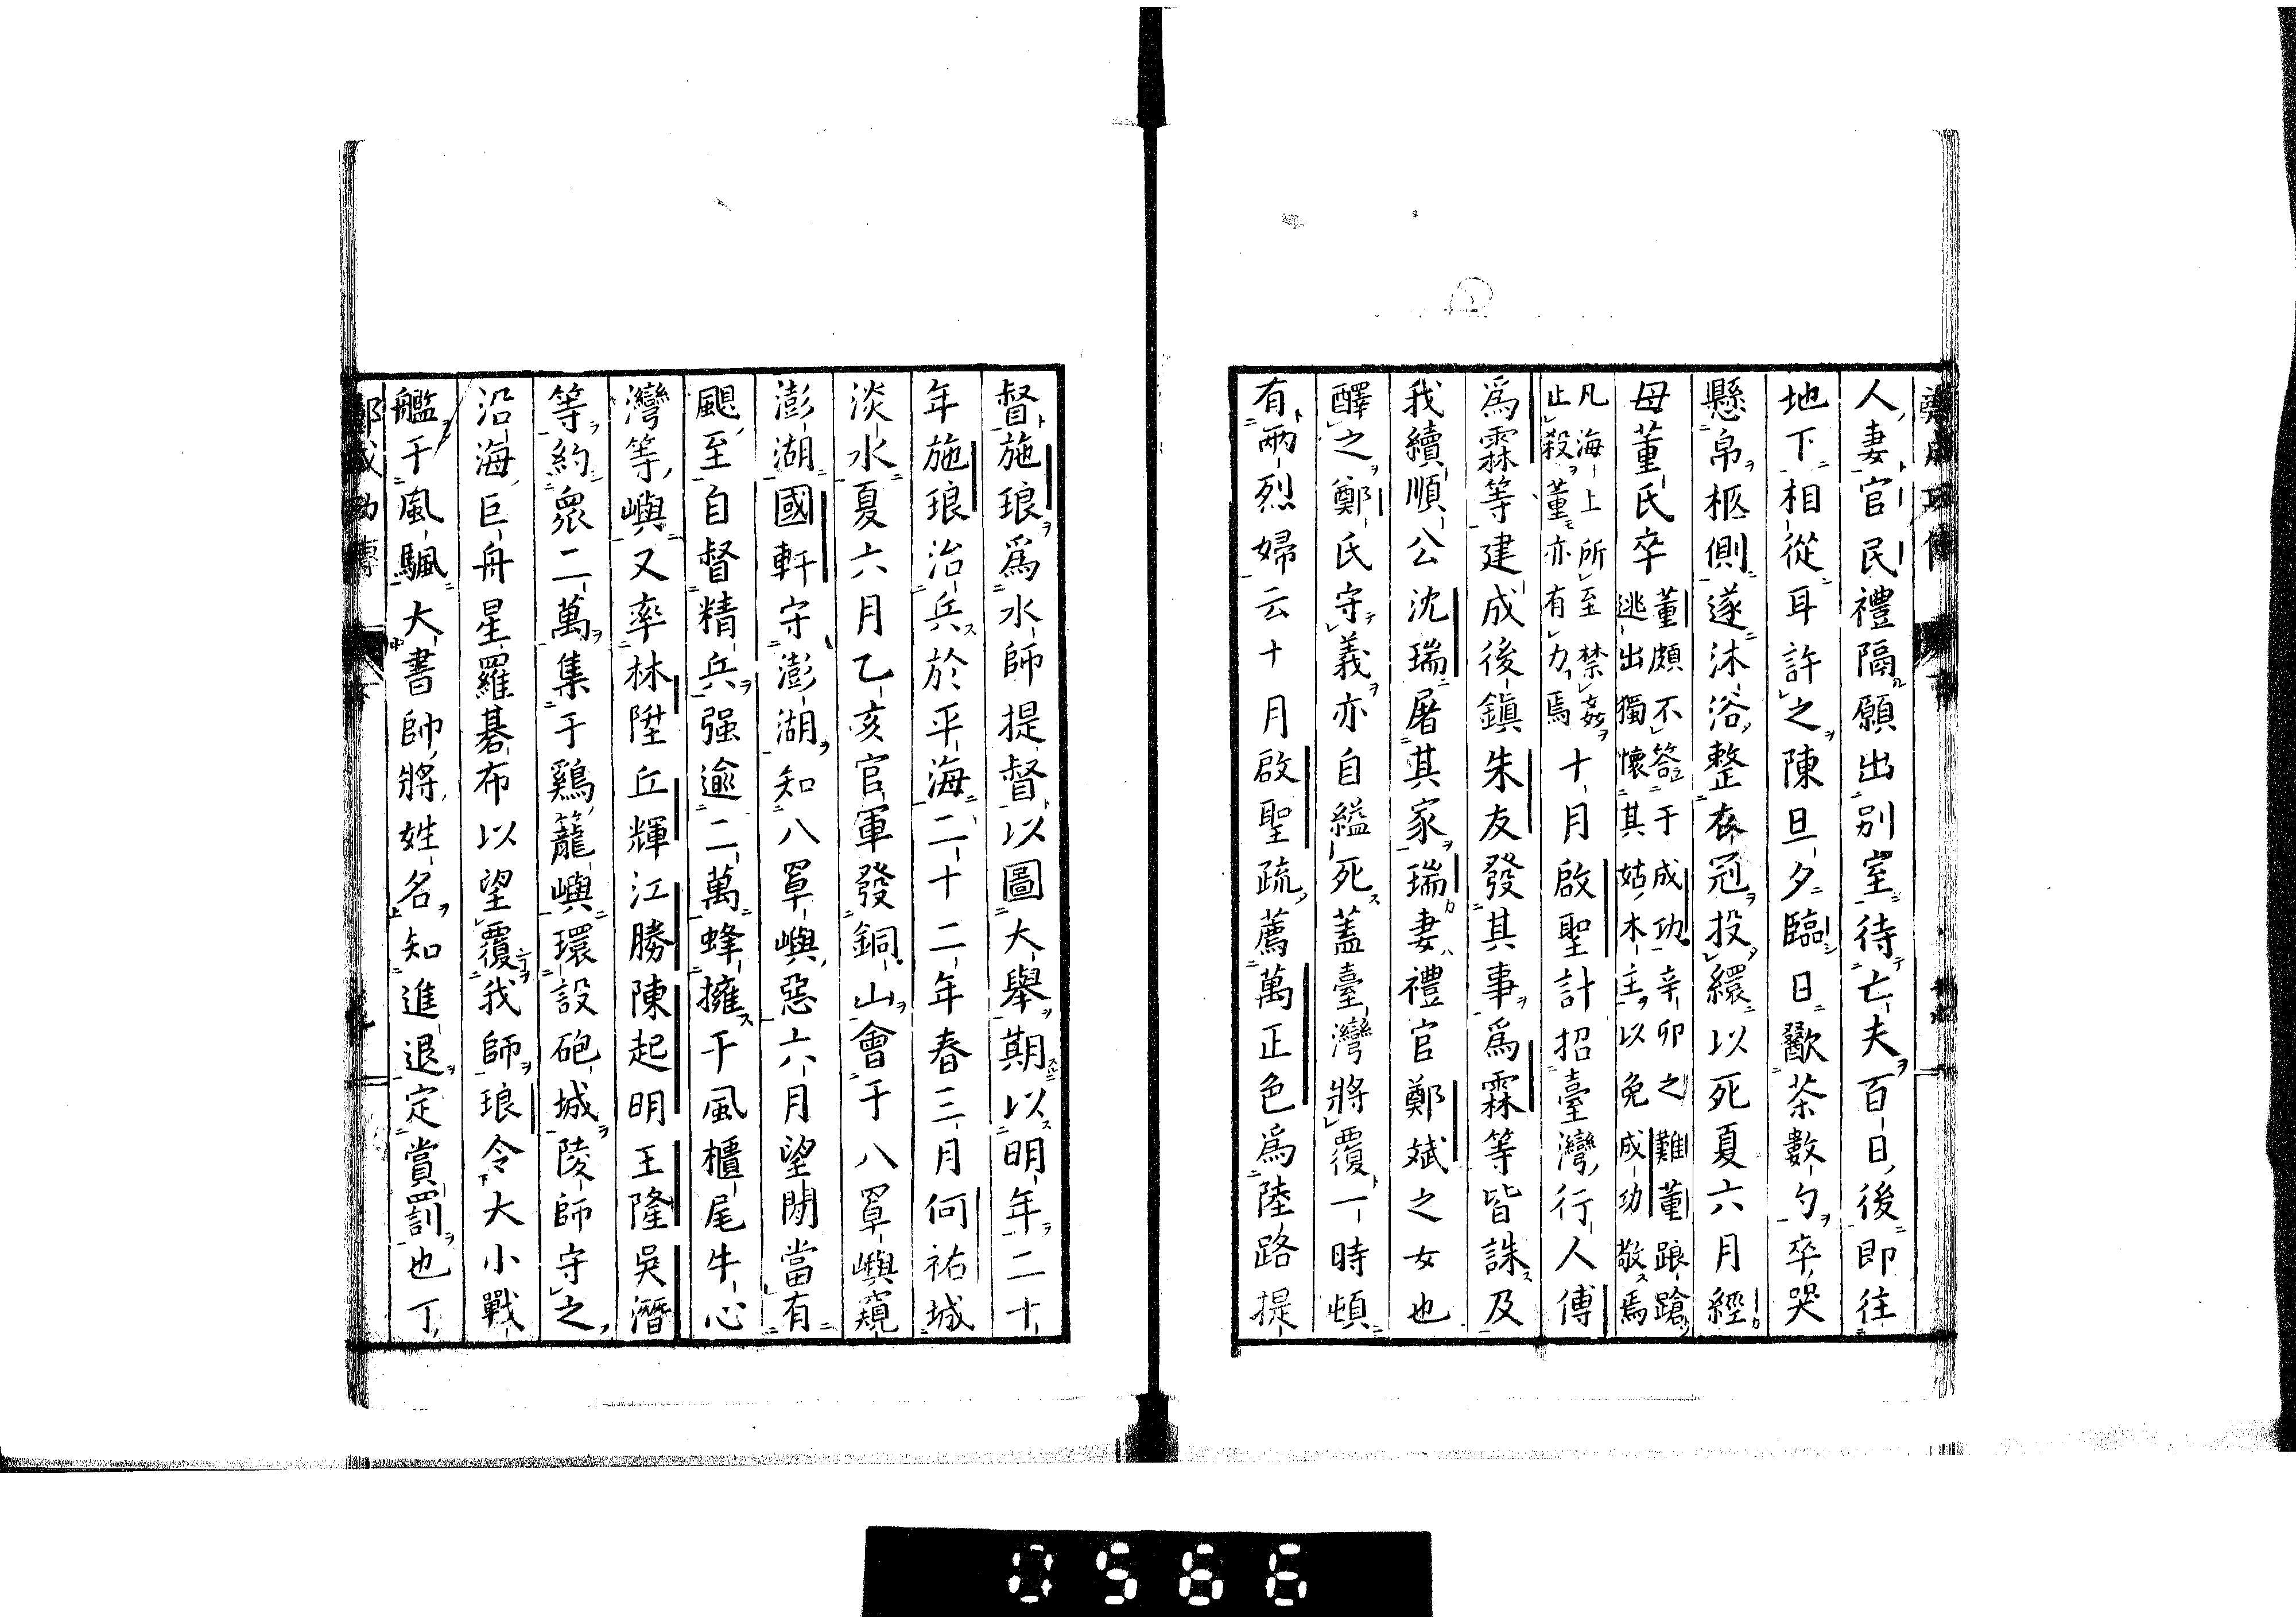 人妻官民禮隔願出別室待亡夫百日後即往
地下相從耳許之陳旦夕臨日歠茶數勺卒哭
懸帛柩側遂沐浴整衣冠投繯以死夏六月經
母董氏卒
董頗不答于成功辛卯之難董踉蹌
逃出獨懷其姑木主以免成功敬焉
凡海上所至禁姦
止殺董亦有力焉
十月啟聖計招臺灣行人傅
爲霖等建成後鎮朱友發其事爲霖等皆誅及
我續順公沈瑞屠其家瑞妻禮官鄭斌之女也
釋之鄭氏守義亦自縊死蓋臺灣將覆一時頓
有兩烈婦云十月啟聖疏薦萬正色爲陸路提
督施琅爲水師提督以圖大舉期以明年二十
年施琅治兵於平海二十二年春三月何祐城
淡水夏六月乙亥官軍發銅山會于八罩嶼窺
澎湖國軒守澎湖知八罩嶼惡六月望閒當有
颶至自督精兵强逾二萬蜂擁于風櫃尾牛心
灣等嶼又率林陞丘輝江勝陳起明王隆吳潛
等約眾二萬集于鷄籠嶼環設砲城陵師守之
沿海巨舟星羅碁布以望覆我師琅令大小戰
艦于風颿大書帥將姓名知進退定賞罰也丁
鄭成功傳
0566